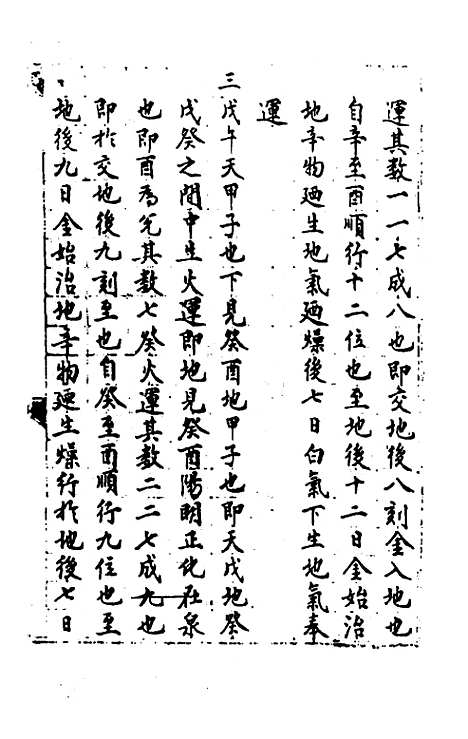 運其數一一七成八也即交地後八刻金入地也
自辛至酉順行十二位也至地後十二日金始治
地辛物廼生地氣廼燥後七日白氣下生地氣奉
運
三戊午天甲子也下見癸酉地甲子也即天戊地癸
戊癸之間中生火運即地見癸酉陽明正化在泉
也即酉為兌其數七癸火運其數二二七成九也
即於交地後九刻至也自癸至酉順行九位也至
地後九日金始治地辛物廼生燥行於地後七日